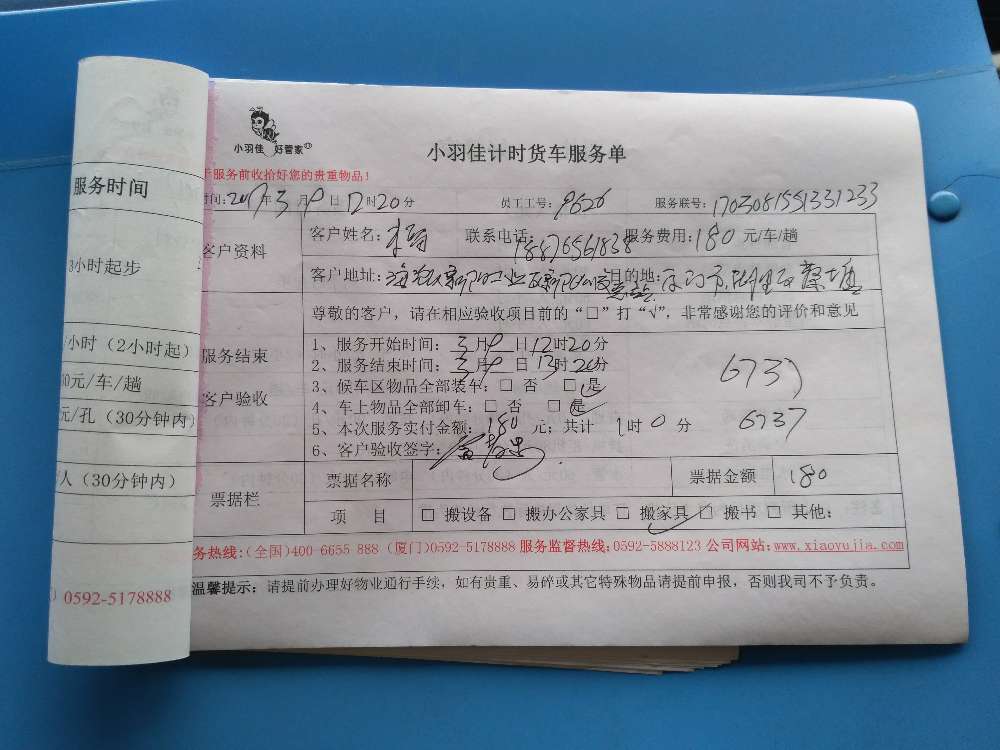 小羽佳 好管家
小羽佳计时货车服务单
服务前收拾好您的贵重物品！
时间：2017年3月9日12时20分 员工工号：9626 服务联号：1703081551331233
客户资料
客户姓名： 联系电话：18876561838 服务费用：180元/车/趟
客户地址： 目的地：
尊敬的客户，请在相应验收项目前的“□”打“√”，非常感谢您的评价和意见
服务结束
客户验收
1、服务开始时间：3月9日12时20分
2、服务结束时间：3月9日13时20分
3、候车区物品全部装车：□ 否 □ 是
6737
4、车上物品全部卸车：□ 否 □ 是
5、本次服务实付金额：180元；共计 1时0分
6737
6、客户验收签字：
票据栏
票据名称 票据金额 180
项 目 □ 搬设备 □ 搬办公家具 □ 搬家具 □ 搬书 □ 其他：
务热线：(全国)400-6655 888 (厦门)0592-5178888 服务监督热线：0592-5888123 公司网站：www.xiaoyujia.com
温馨提示：请提前办理好物业通行手续，如有贵重、易碎或其它特殊物品请提前申报，否则我司不予负责。
服务时间
小时起步
小时（2小时起）
0元/车/趟
元/孔（30分钟内）
人（30分钟内）
0592-5178888